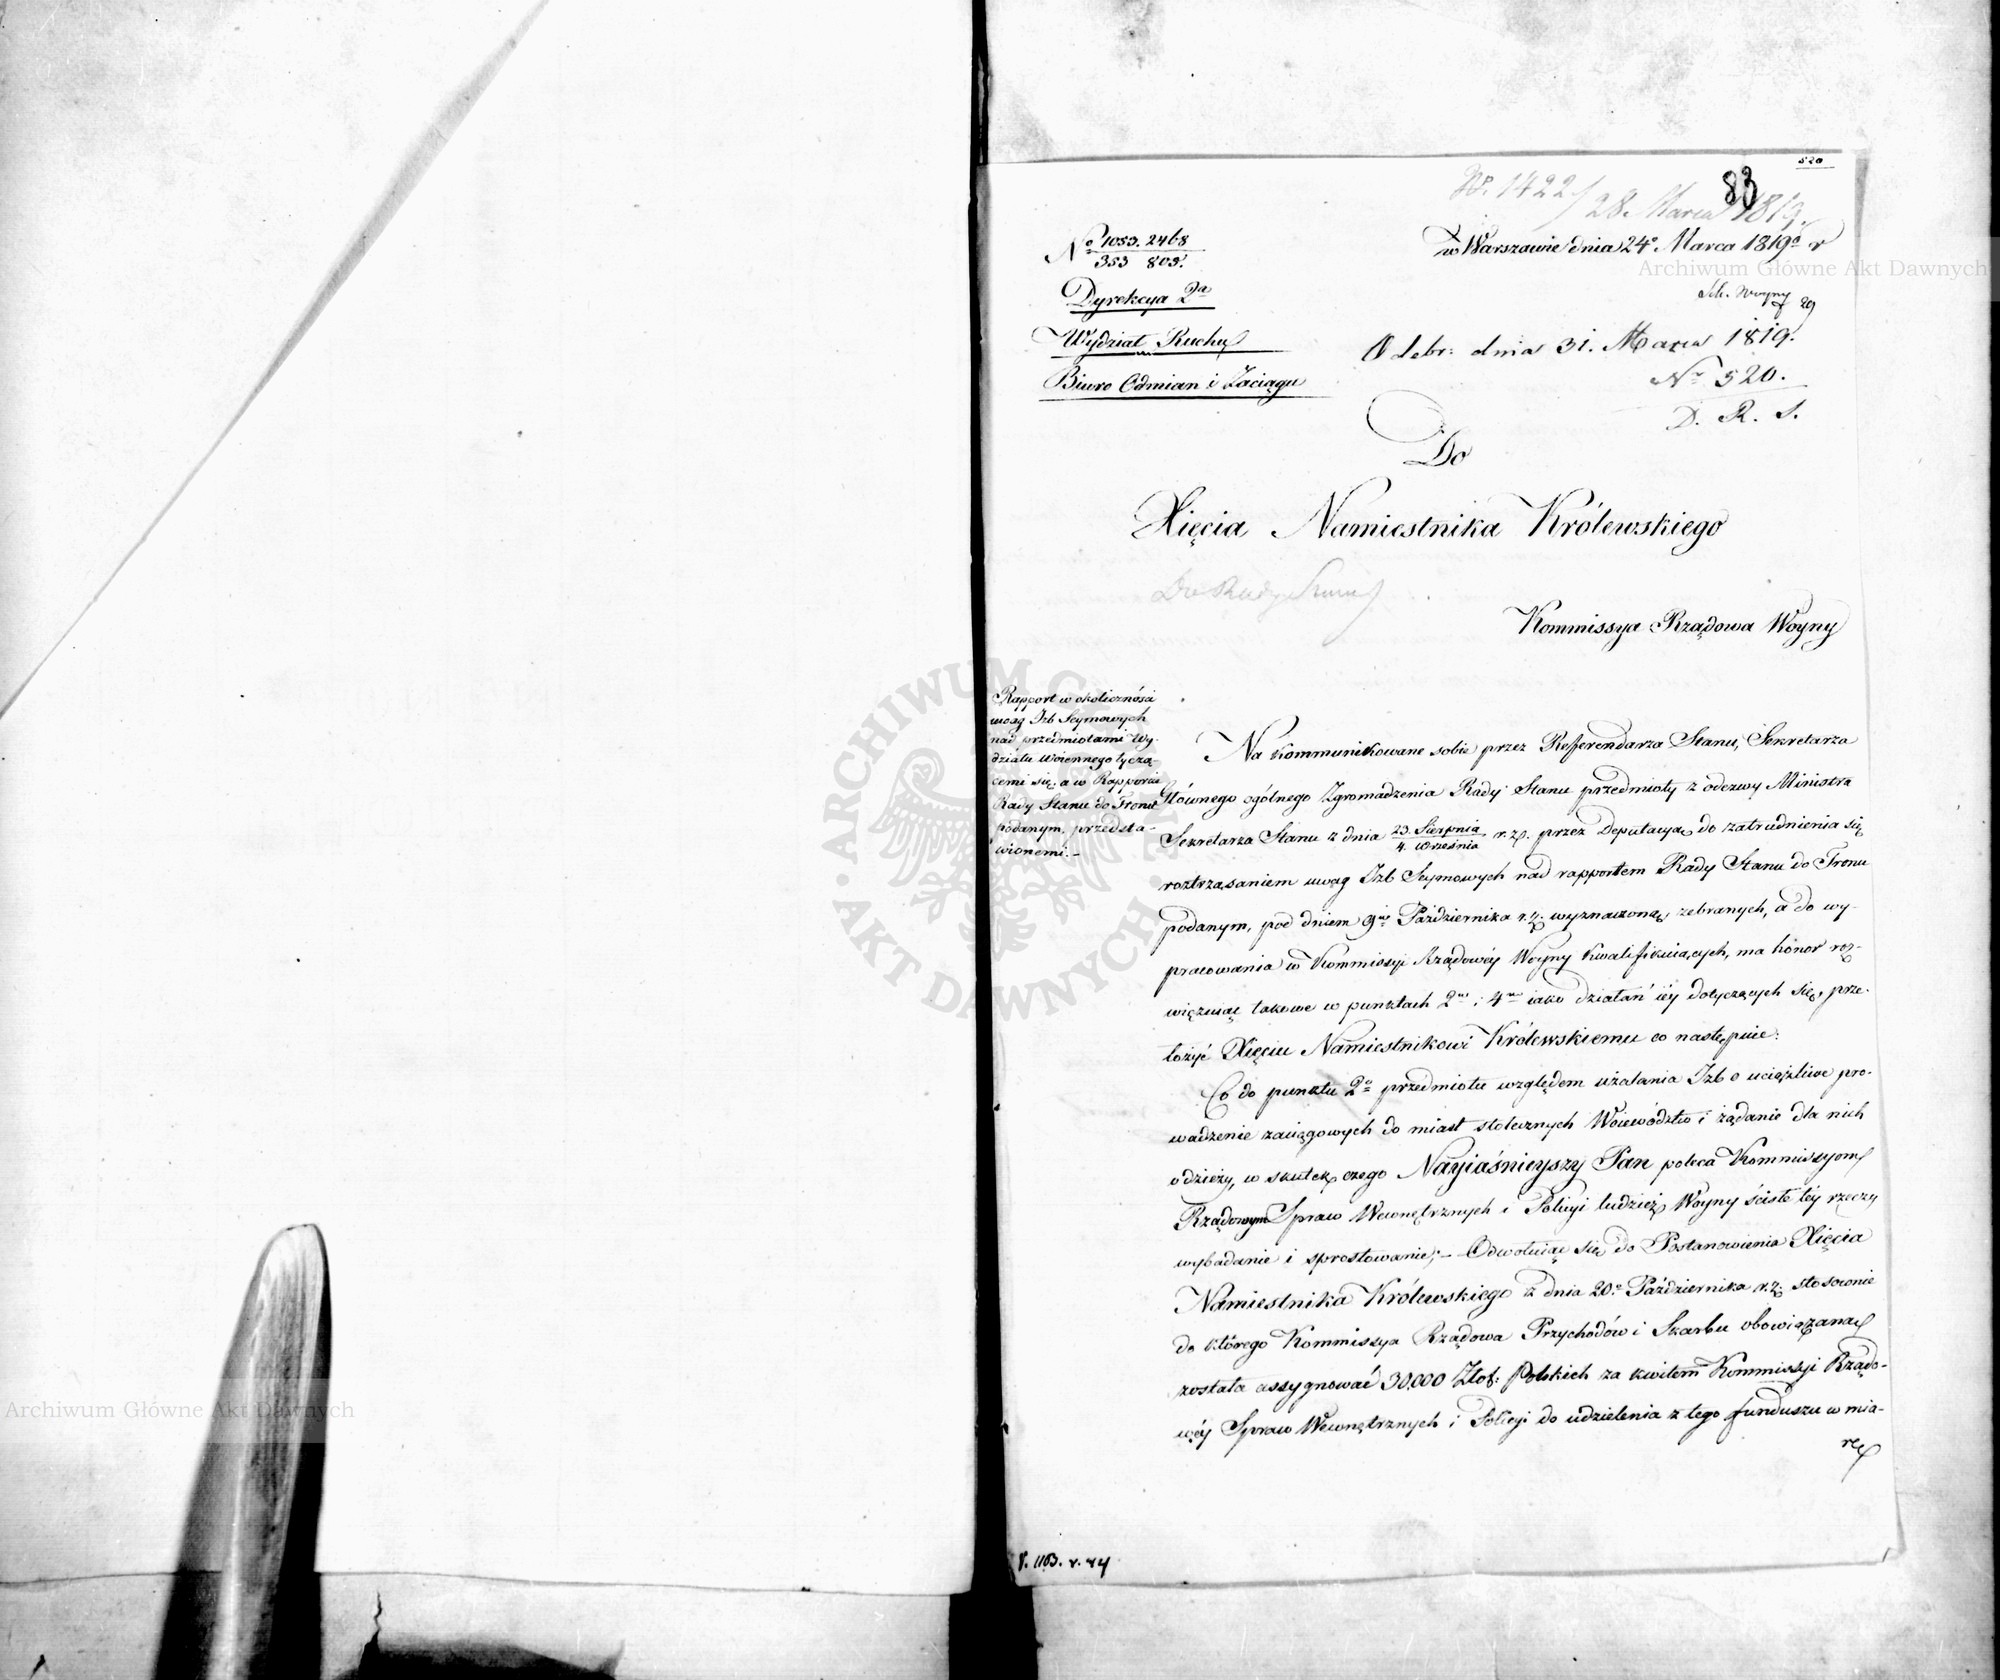 520
83
No. 1422/28. Marca 1819.
No 1053. 2468
353 803.
w Warszawie dnia 24o Marca 1819o r
Dyrekcya 2a
Wydział Ruchu
Odebr: dnia 31. Marca 1819.
No 520.
Biuro Odmian i Zaciągu
D. R. S.
Do
Xięcia Namiestnika Królewskiego
Do Rady Stanu
Kommissya Rządowa Woyny
Rapport w okoliczności
uwag Izb Seymowych
nad przedmiotami Wy-
działu Woiennego tyczą
cemi się, a w Rapporcie
Rady Stanu do Tronu
podanym, przedsta-
wionemi.-
Na kommunikowane sobie przez Refferendarza Stanu, Sekretarza
Głównego ogólnego Zgromadzenia Rady Stanu przedmioty z odezwy Ministra
Sekretarza Stanu z dnia 23. Sierpnia / 4. Września r. z. przez Deputacyą do zatrudnienia się
roztrząsaniem uwag Izb Seymowych nad rapportem Rady Stanu do Tronu
podanym, pod dniem 9m Października r. z. wyznaczoną, zebranych, a do wy-
pracowania w Kommissyi Rządowéy Woyny kwalifikuiących, ma honor roz-
wiązuiąc takowe w punktach 2m i 4m iako działań iéy dotyczących się, prze-
łożyć Xięciu Namiestnikowi Królewskiemu co następuie:
Co do punktu 2o przedmiotu względem użalania Izb o uciążliwe pro-
wadzenie zaciągowych do miast stołecznych Woiewództw i żądanie dla nich
odzieży, w skutek czego Nayiaśnieyszy Pan poleca Kommissyom
Rządowym Spraw Wewnętrznych i Policyi tudzież Woyny ścisłe téy rzeczy
wybadanie i sprostowanie;- Odwołuiąc się do Postanowienia Xięcia
Namiestnika Królewskiego z dnia 20o Października r. z. stosownie
do którego Kommissya Rządowa Przychodów i Skarbu obowiązaną
została assygnować 30,000 Złot: Polskich za kwitem Kommissyi Rządo-
wéy Spraw Wewnętrznych i Policyi do udzielenia z tego funduszu w mia-
rę
Archiwum Główne Akt Dawnych
Archiwum Główne Akt Dawnych
ARCHIWUM GŁÓWNE AKT DAWNYCH